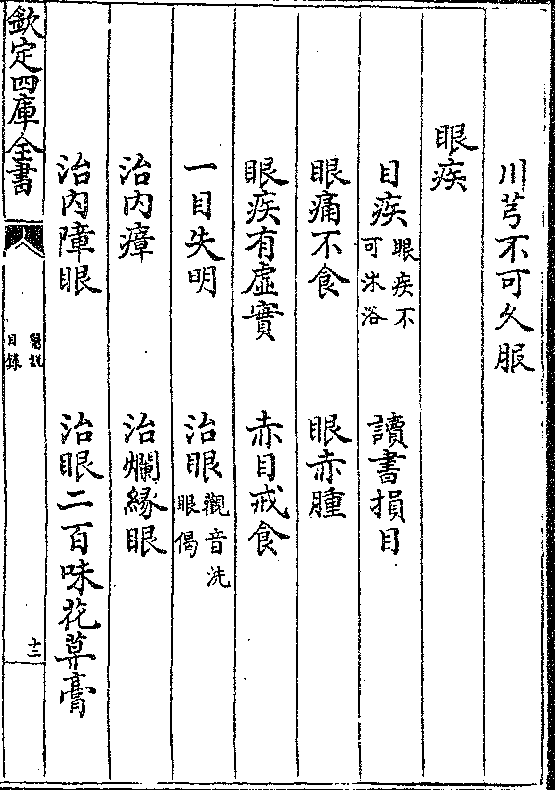 川芎不可久服
眼疾
目疾眼疾不可沐浴 讀書損目
眼痛不食 眼赤腫
眼疾有虛實 赤目戒食
一目失明 治眼觀音洗眼偈
治内瘴 治爛緣眼
治内障眼 治眼二百味花草膏
欽定四庫全書
醫說
目錄
十二